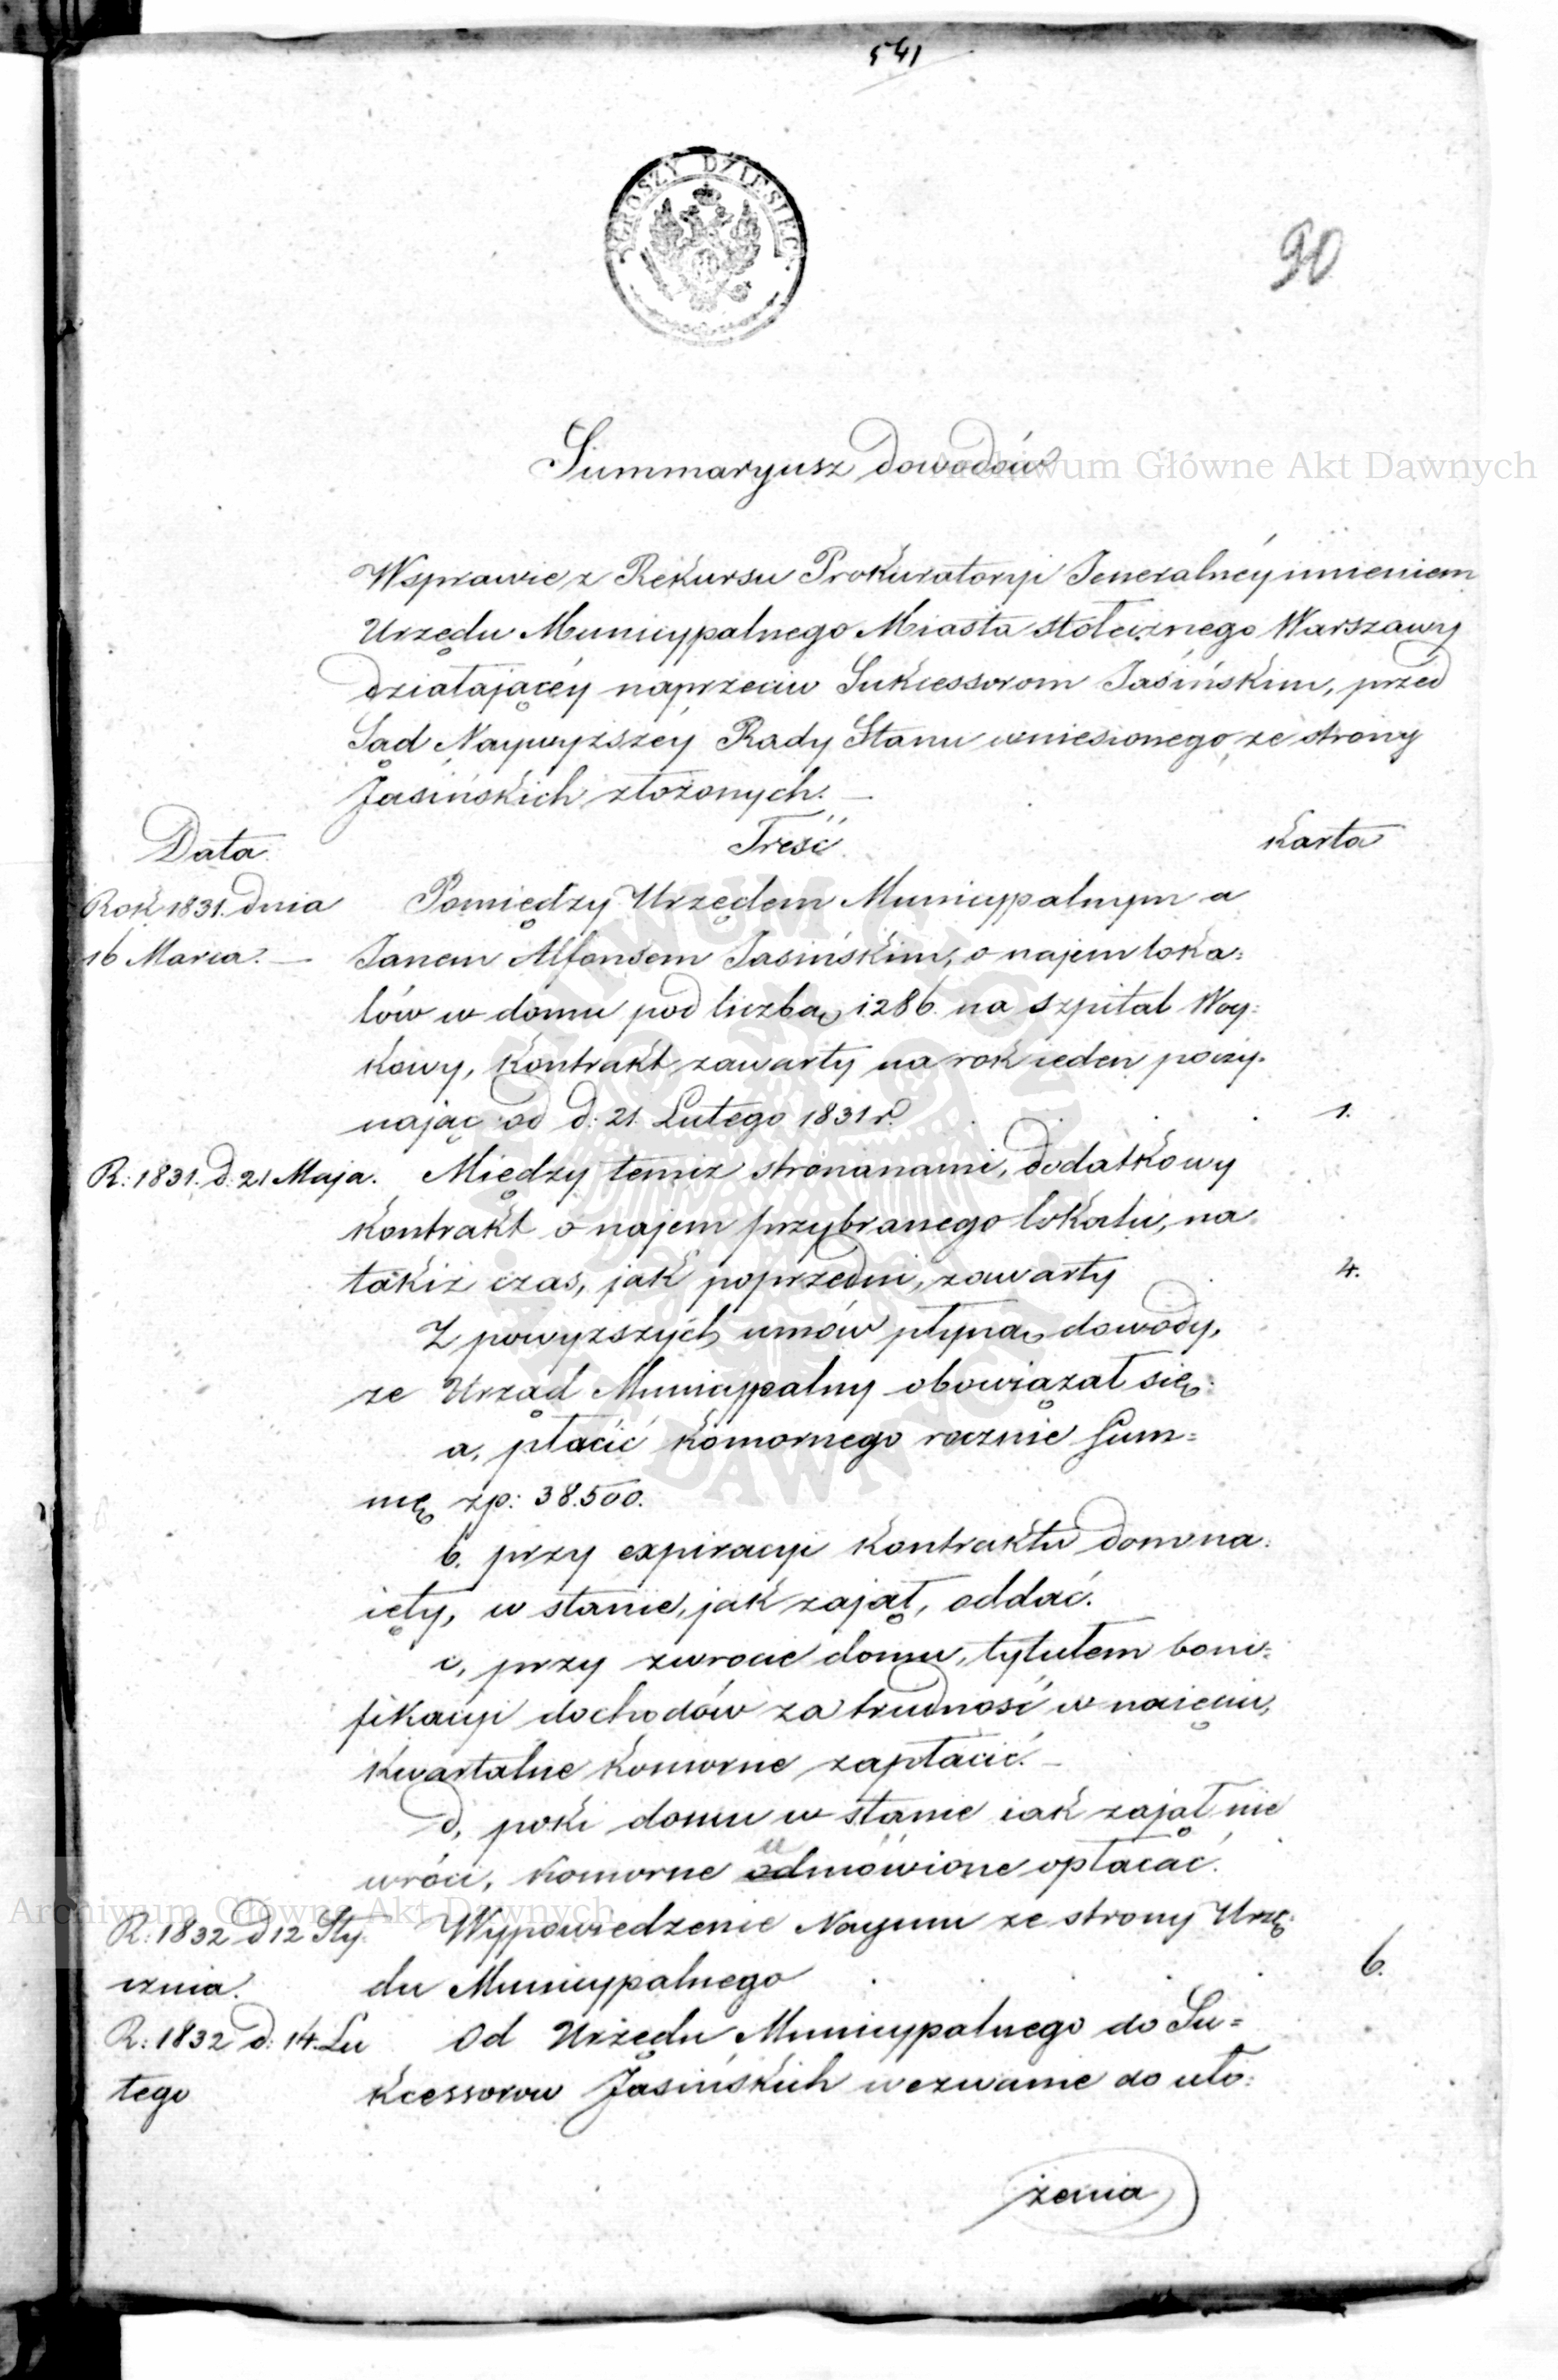 541
GROSZY DZIESIĘĆ
90
Summaryusz dowodów
Archiwum Główne Akt Dawnych
Wsprawie z Rekursu Prokuratoryi Jeneralnéy imieniem
Urzędu Municypalnego Miasta stołecznego Warszawy
działaiącéy naprzeciw Sukcessorom Jasińskim, przed
Sąd Naywyższéy Rady Stanu wniesionego, ze strony
Jasińskich złożonych. —
Data. Treść Karta
Rok 1831. dnia Pomiędzy Urzędem Municypalnym a
16 Marca. — Janem Alfonsem Jasińskim, o najem loka=
lów w domu pod liczbą 1286. na szpital Woy=
skowy, kontrakt zawarty na rok ieden poczy=
nając od d: 21. Lutego 1831 r. 1.
R: 1831. d. 21 Maja. Między temiż stronanami, dodatkowy
kontrakt o najem przybranego lokalu, na
takiż czas, jak poprzedni, zawarty 4.
Z powyższych umów płyną dowody,
że Urząd Municypalny obowiązał się:
a, płacić komornego rocznie Sum=
mę zp: 38.500.
b. przy expiracyi kontraktu dom na=
ięty, w stanie, jak zajął, oddać.
c, przy zwrocie domu, tytułem boni=
fikacyi dochodów za trudność w naięciu,
kwartalne komorne zapłacić. —
d, poki domu w stanie iak zajął nie
wróci, komorne udmówione opłacać.
R: 1832 d 12 Sty= Wypowiedzenie Naymu ze strony Urzę=
cznia. du Municypalnego 6.
R: 1832 d: 14. Lu Od Urzędu Municypalnego do Su=
tego kcessorow Jasińskich wezwanie do uło=
żenia
Archiwum Główne Akt Dawnych
ARCHIWUM GŁÓWNE AKT DAWNYCH